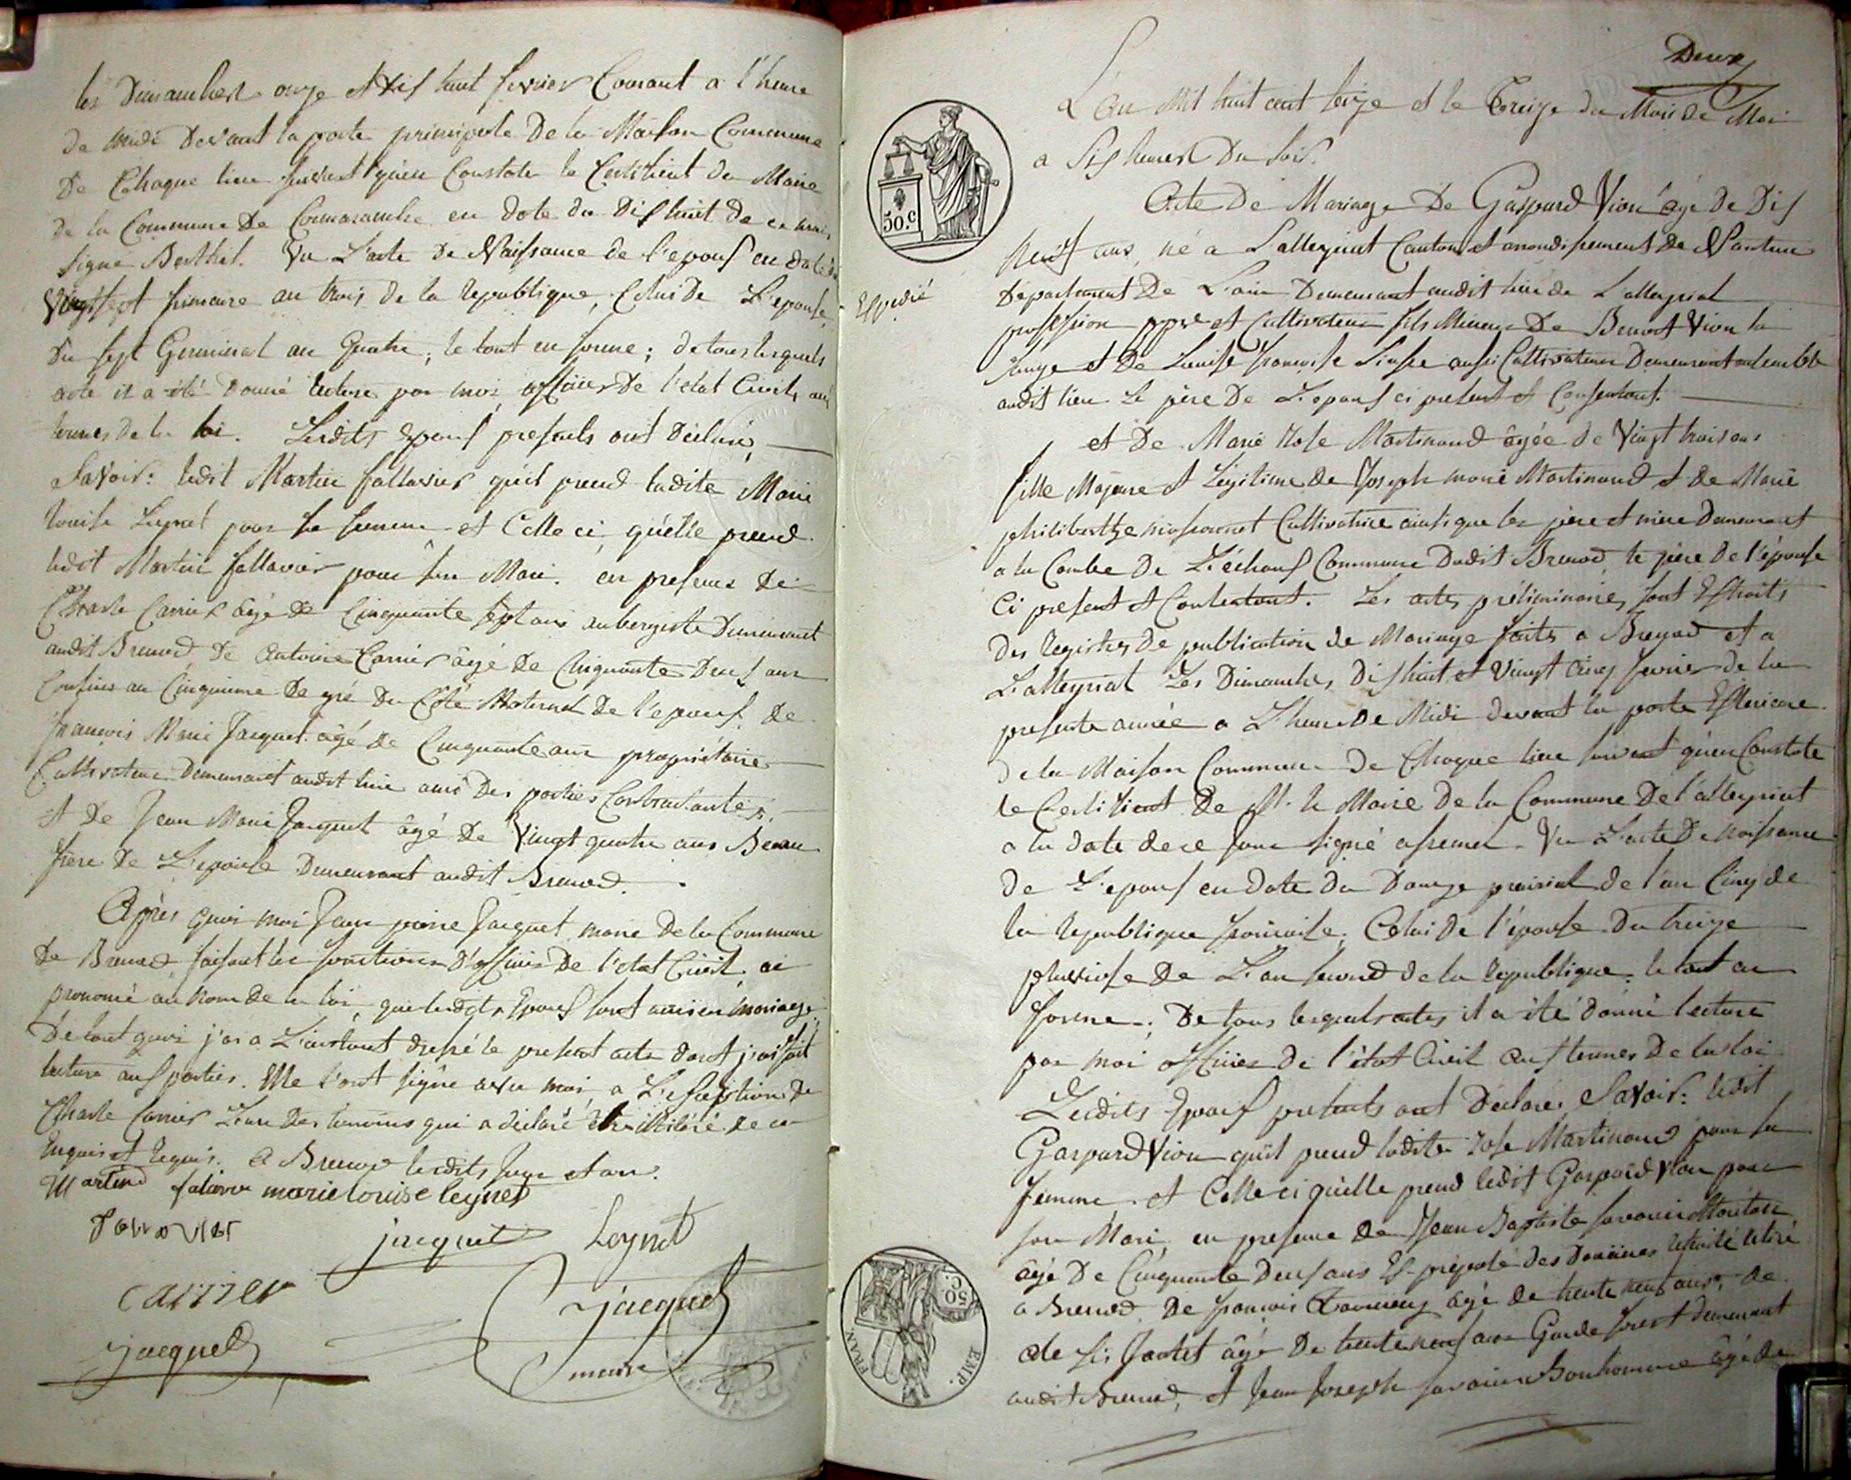 les Dimanches onze et dix huit fevrier Courant a l'heure
de midi Devant la porte principale De la Maison Commune
De Chaque lieu suivant qu'en Constate le Certificat du Maire
de la Commune De en date du Dix huit de ce mois
signé Berthet. Vu L'acte De Naissance de l'epoux en date du
Vingt sept frimaire an trois de la Republique, Celui De L'epouse
Du sept Germinal an Quatre, le tout en forme; de tous lesquels
acte il a été Donné lecture par moi officier De l'etat Civil, aux
termes de la loi. Lesdits Epoux presents ont Déclaré,
Savoir: ledit Martin fallavier qu'il prend ladite Marie
louise Leynet pour sa femme et Celle ci, qu'elle prend
ledit Martin fallavier pour son Mari. en presence De
Charle Carrier âgé de Cinquante sept ans aubergiste Demeurant
audit Brenod De Antoine Carrier âgé De Cinquante Deux ans
Cousins au Cinquieme De gré Du Côté Maternel De l'epoux, de
françois Marie Jacquet âgé de Cinquante ans propriétaire
Cultivateur Demeurant audit lieu amis Des parties Contractantes,
et De Jean Marie Jacquet âgé De Vingt quatre ans Beau
frere De L'epouse Demeurant audit Brenod.
Après quoi moi Jean pierre Jacquet maire de la Commune
De Brenod faisant les fonctions D'officier De l'etat Civil ai
prononcé au nom de la loi que lesdits Epoux sont unis en mariage
De tout quoi j'ai a L'instant dressé le present acte dont j'ai fait
lecture aux parties. Elle l'ont signé avec moi, a L'exception de
Charle Carrier L'un Des temoins qui a déclaré être illitéré de ce
Enquis et Requis. a Brenod lesdits Jour et an.
Martin falavier marie louise leynet
jacquet Leynet
carrier
jacquet
jacquet
maire
Deux
L'an Mil huit cent seize et le Treize du Mois de Mai
a Six heures Du soir.
Acte De Mariage De Gaspard Vion âgé De Dix
Neuf ans, né a Lalleyriat Canton et arrondissement de Nantua
Département De L'ain Demeurant audit lieu de Lalleyriat
Expédié
profession ppre et Cultivateur fils Mineur De Benoit Vion la
et De Louise françoise aussi Cultivateur Demeurant ensemble
audit lieu. Le père De L'epoux ci present et Consentant.
et De Marie Rose Martinand âgée de Vingt trois ans
fille Majeure et Légitime de Joseph marie Martinand et de Marie
philiberthe Cultivatrice ainsi que les père et mère Demeurant
a la Combe De Léchaux Commune Dudit Brenod le père de l'épouse
Ci present et Contentant. Les actes préliminaires sont Extraits
Des Registres De publication de Mariage faits a Brenod et a
Lalleyriat Les Dimanches Dix huit et Vingt Cinq fevrier de la
presente année a L'heure De Midi devant la porte Exterieure
de la Maison Commune De Chaque lieu suivant qu'en Constate
le Certificat De Mr. le Maire De la Commune De l'alleyriat
a la Date de ce jour signé Vu L'acte De Naissance
De L'epoux en Date Du Douze prairial de l'an Cinq de
la Republique françoise. Celui De l'épouse Du treize
pluviose De L'an second de la Republique; le tout en
forme; De tous lesquels actes il a été donné lecture
par moi officier De l'état Civil aux termes De la loi
Lesdits Epoux presents ont Déclaré, Savoir: ledit
Gaspard Vion qu'il prend ladite Rose Martinand pour sa
femme et Celle ci qu'elle prend ledit Gaspard Vion pour
son Mari, en presence De Jean Baptiste Savarin Moutou
âgé De Cinquante Deux ans Ex préposé des Douanes retraité
a Brenod, De françois âgé de trente neuf ans, de
âgé De trente neuf ans Garde forest demeurant
audit Brenod, et Jean Joseph Savarin Bonhomme âgé de
50.c
50 C.
EMP. FRAN.